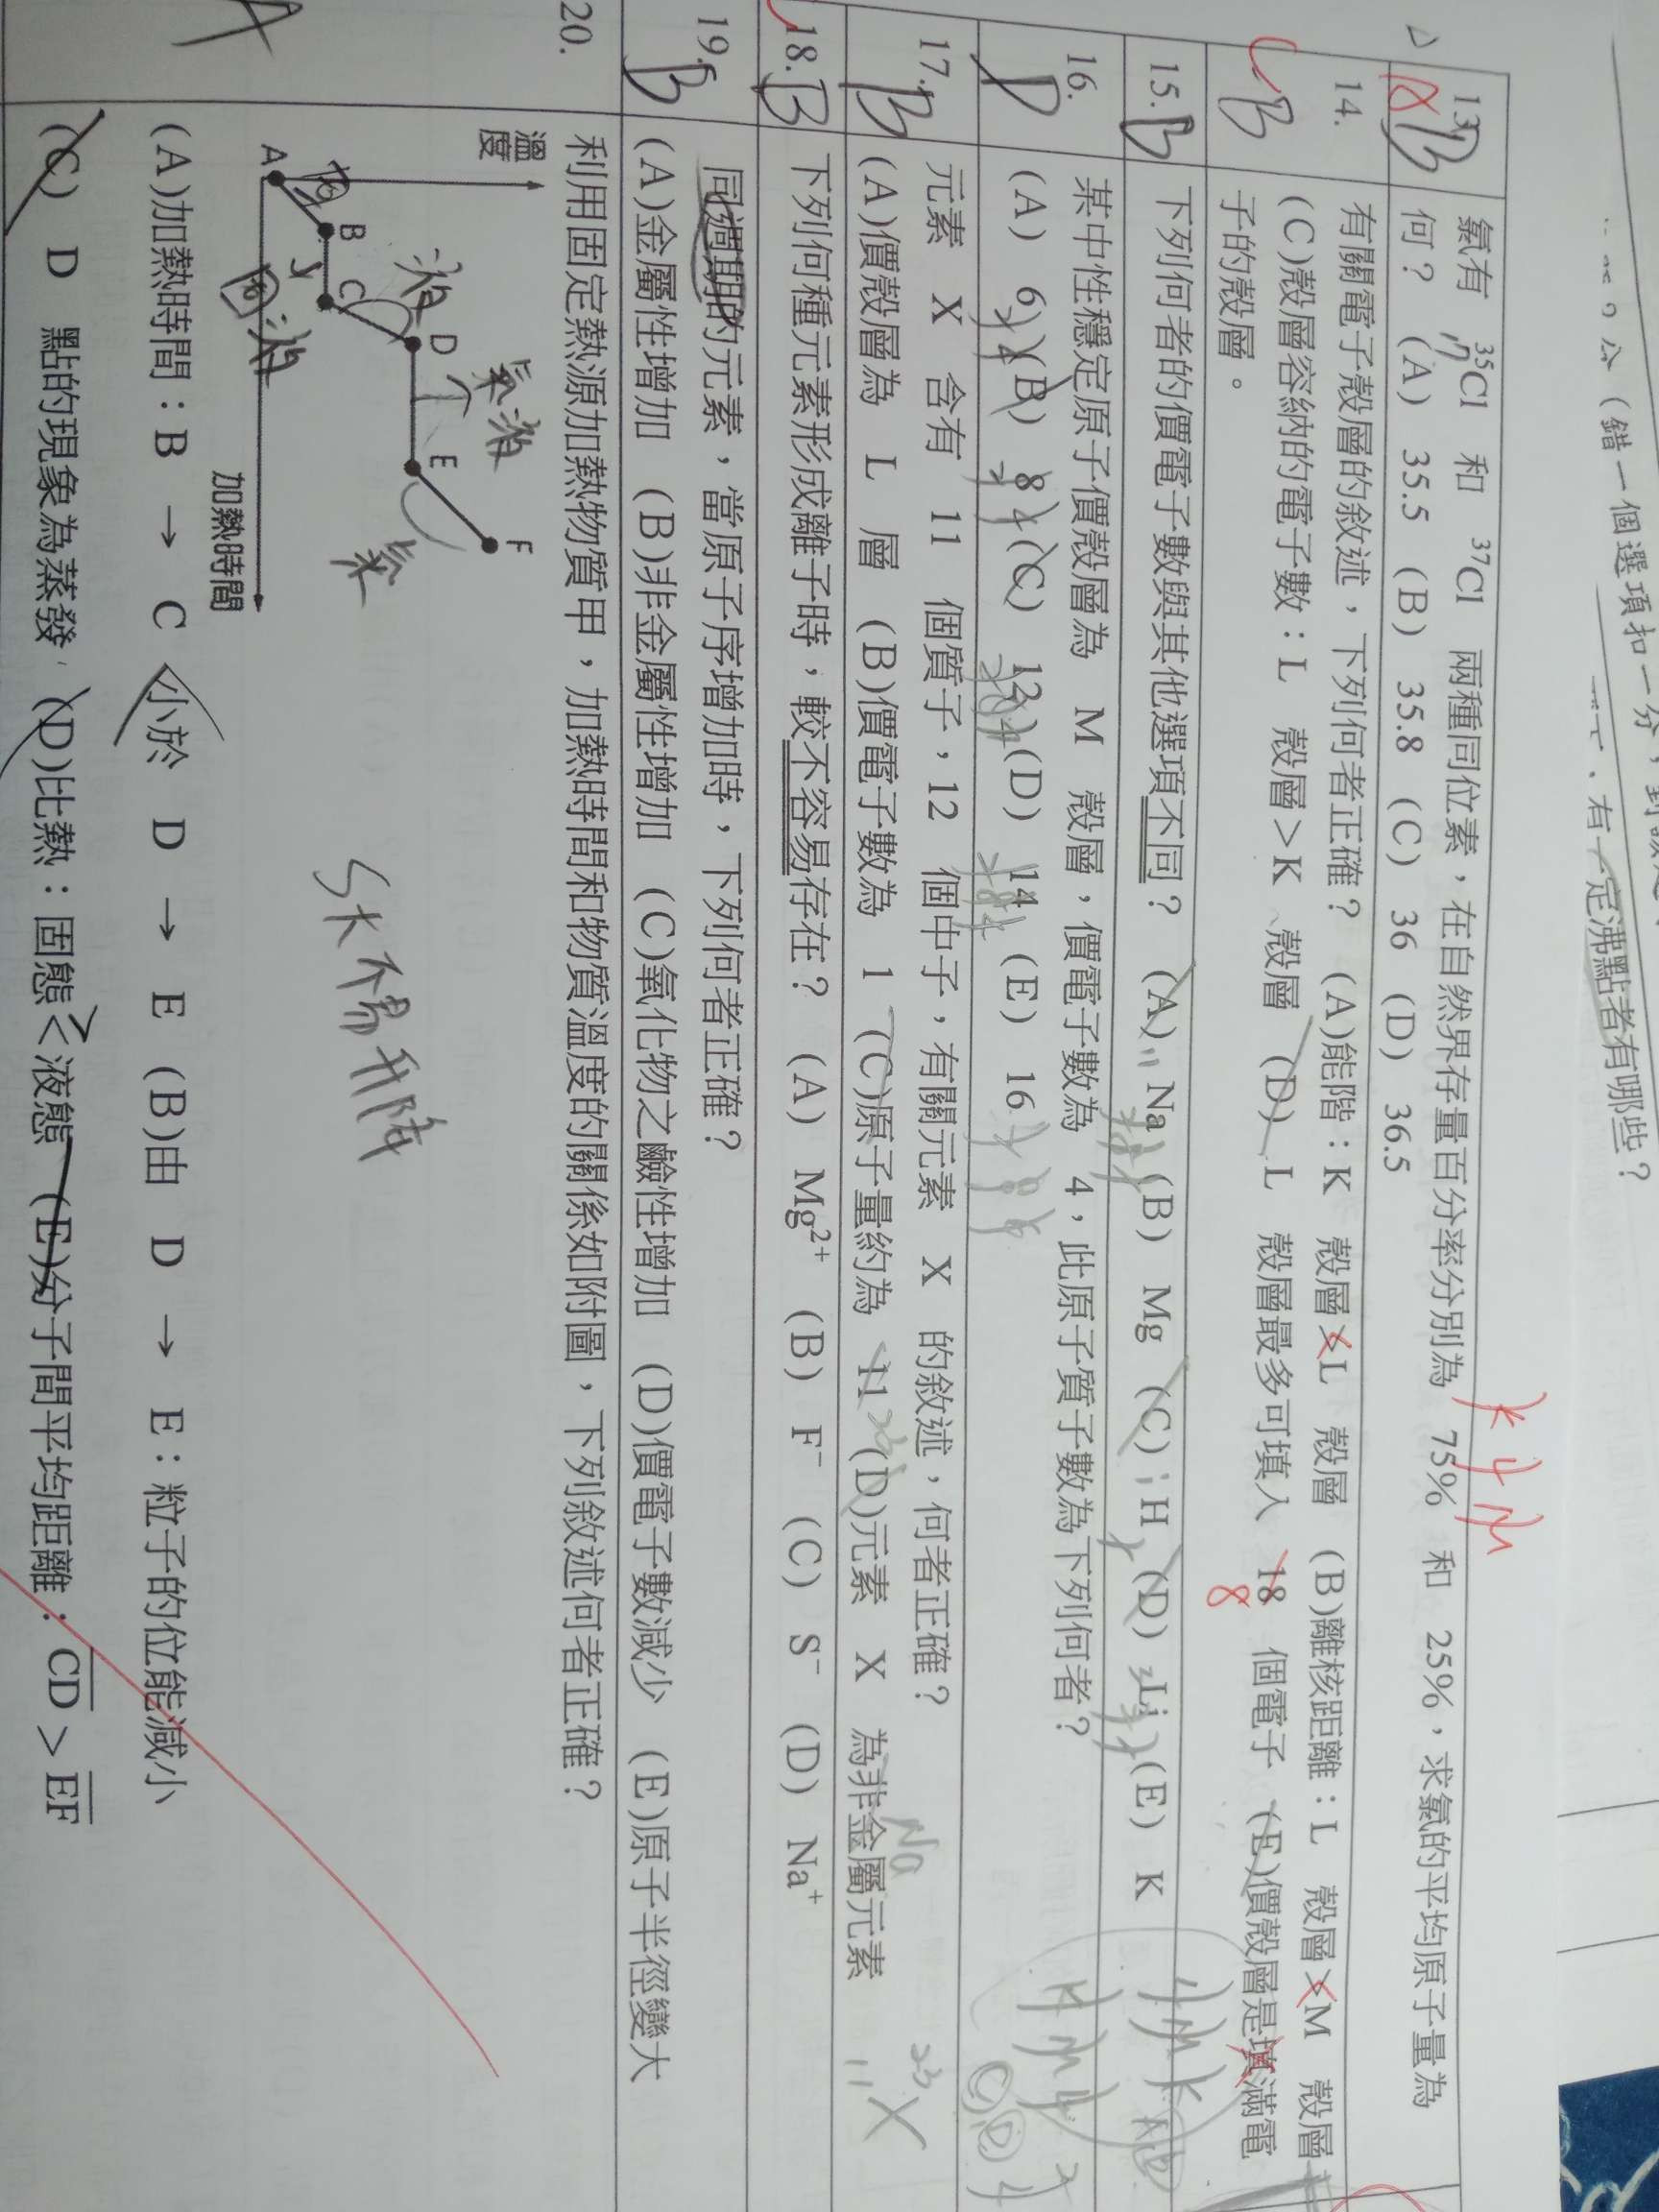 (錯一個選項扣一分,到
有一定沸點者有哪些?
13. 氯有 ³⁵Cl 和 ³⁷Cl 兩種同位素,在自然界存量百分率分別為 75% 和 25%,求氯的平均原子量為
何? (A) 35.5 (B) 35.8 (C) 36 (D) 36.5
B
K L M
17
14. 有關電子殼層的敘述,下列何者正確? (A)能階:K 殼層>L 殼層 (B)離核距離:L 殼層>M 殼層
(C)殼層容納的電子數:L 殼層>K 殼層 (D) L 殼層最多可填入 18 個電子 (E)價殼層是填滿電
子的殼層。
B
8
15. 下列何者的價電子數與其他選項不同? (A) Na (B) Mg (C) H (D) Li (E) K
B
11
1
3
16. 某中性穩定原子價殼層為 M 殼層,價電子數為 4,此原子質子數為下列何者?
(A) 6 (B) 8 (C) 12 (D) 14 (E) 16
D
17. 元素 X 含有 11 個質子,12 個中子,有關元素 X 的敘述,何者正確?
(A)價殼層為 L 層 (B)價電子數為 1 (C)原子量約為 11 (D)元素 X 為非金屬元素
B
23
Na
23
11 X
18. 下列何種元素形成離子時,較不容易存在? (A) Mg²⁺ (B) F⁻ (C) S⁻ (D) Na⁺
B
19. 同週期的元素,當原子序增加時,下列何者正確?
(A)金屬性增加 (B)非金屬性增加 (C)氧化物之鹼性增加 (D)價電子數減少 (E)原子半徑變大
B
20. 利用固定熱源加熱物質甲,加熱時間和物質溫度的關係如附圖,下列敘述何者正確?
A
溫度
A
B
C
D
E
F
加熱時間
固
液
氣液
氣
S大不易升降
(A)加熱時間:B → C 小於 D → E (B)由 D → E:粒子的位能減小
(C) D 點的現象為蒸發 (D)比熱:固態<液態 (E)分子間平均距離:CD > EF